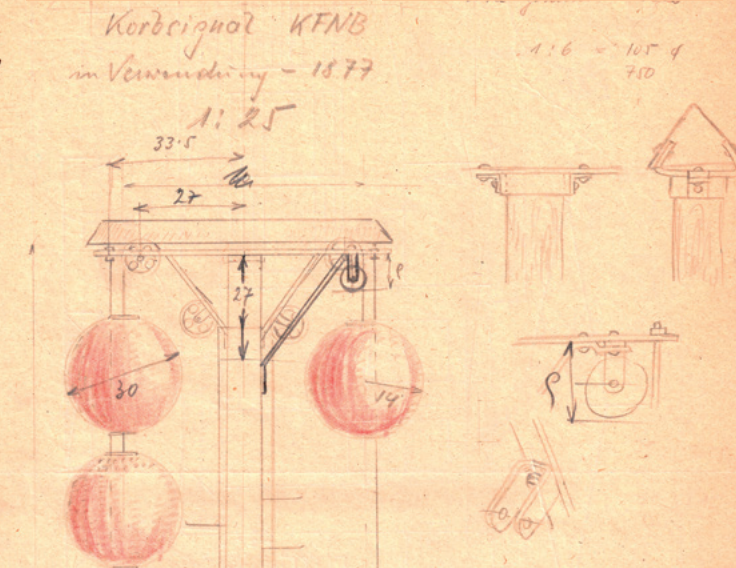 Korbsignal KFNB
in Verwendung - 1877
1:25
1:6 = 105
750
33·5
27
27
30
14